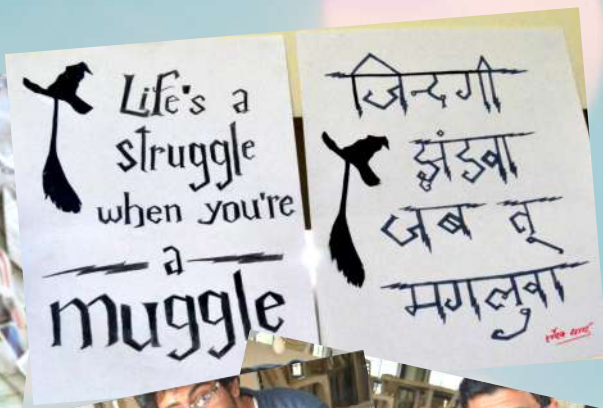 Life's a
struggle
when you're
a
muggle
जिन्दगी
झंडवा
जब तू
मगलुवा